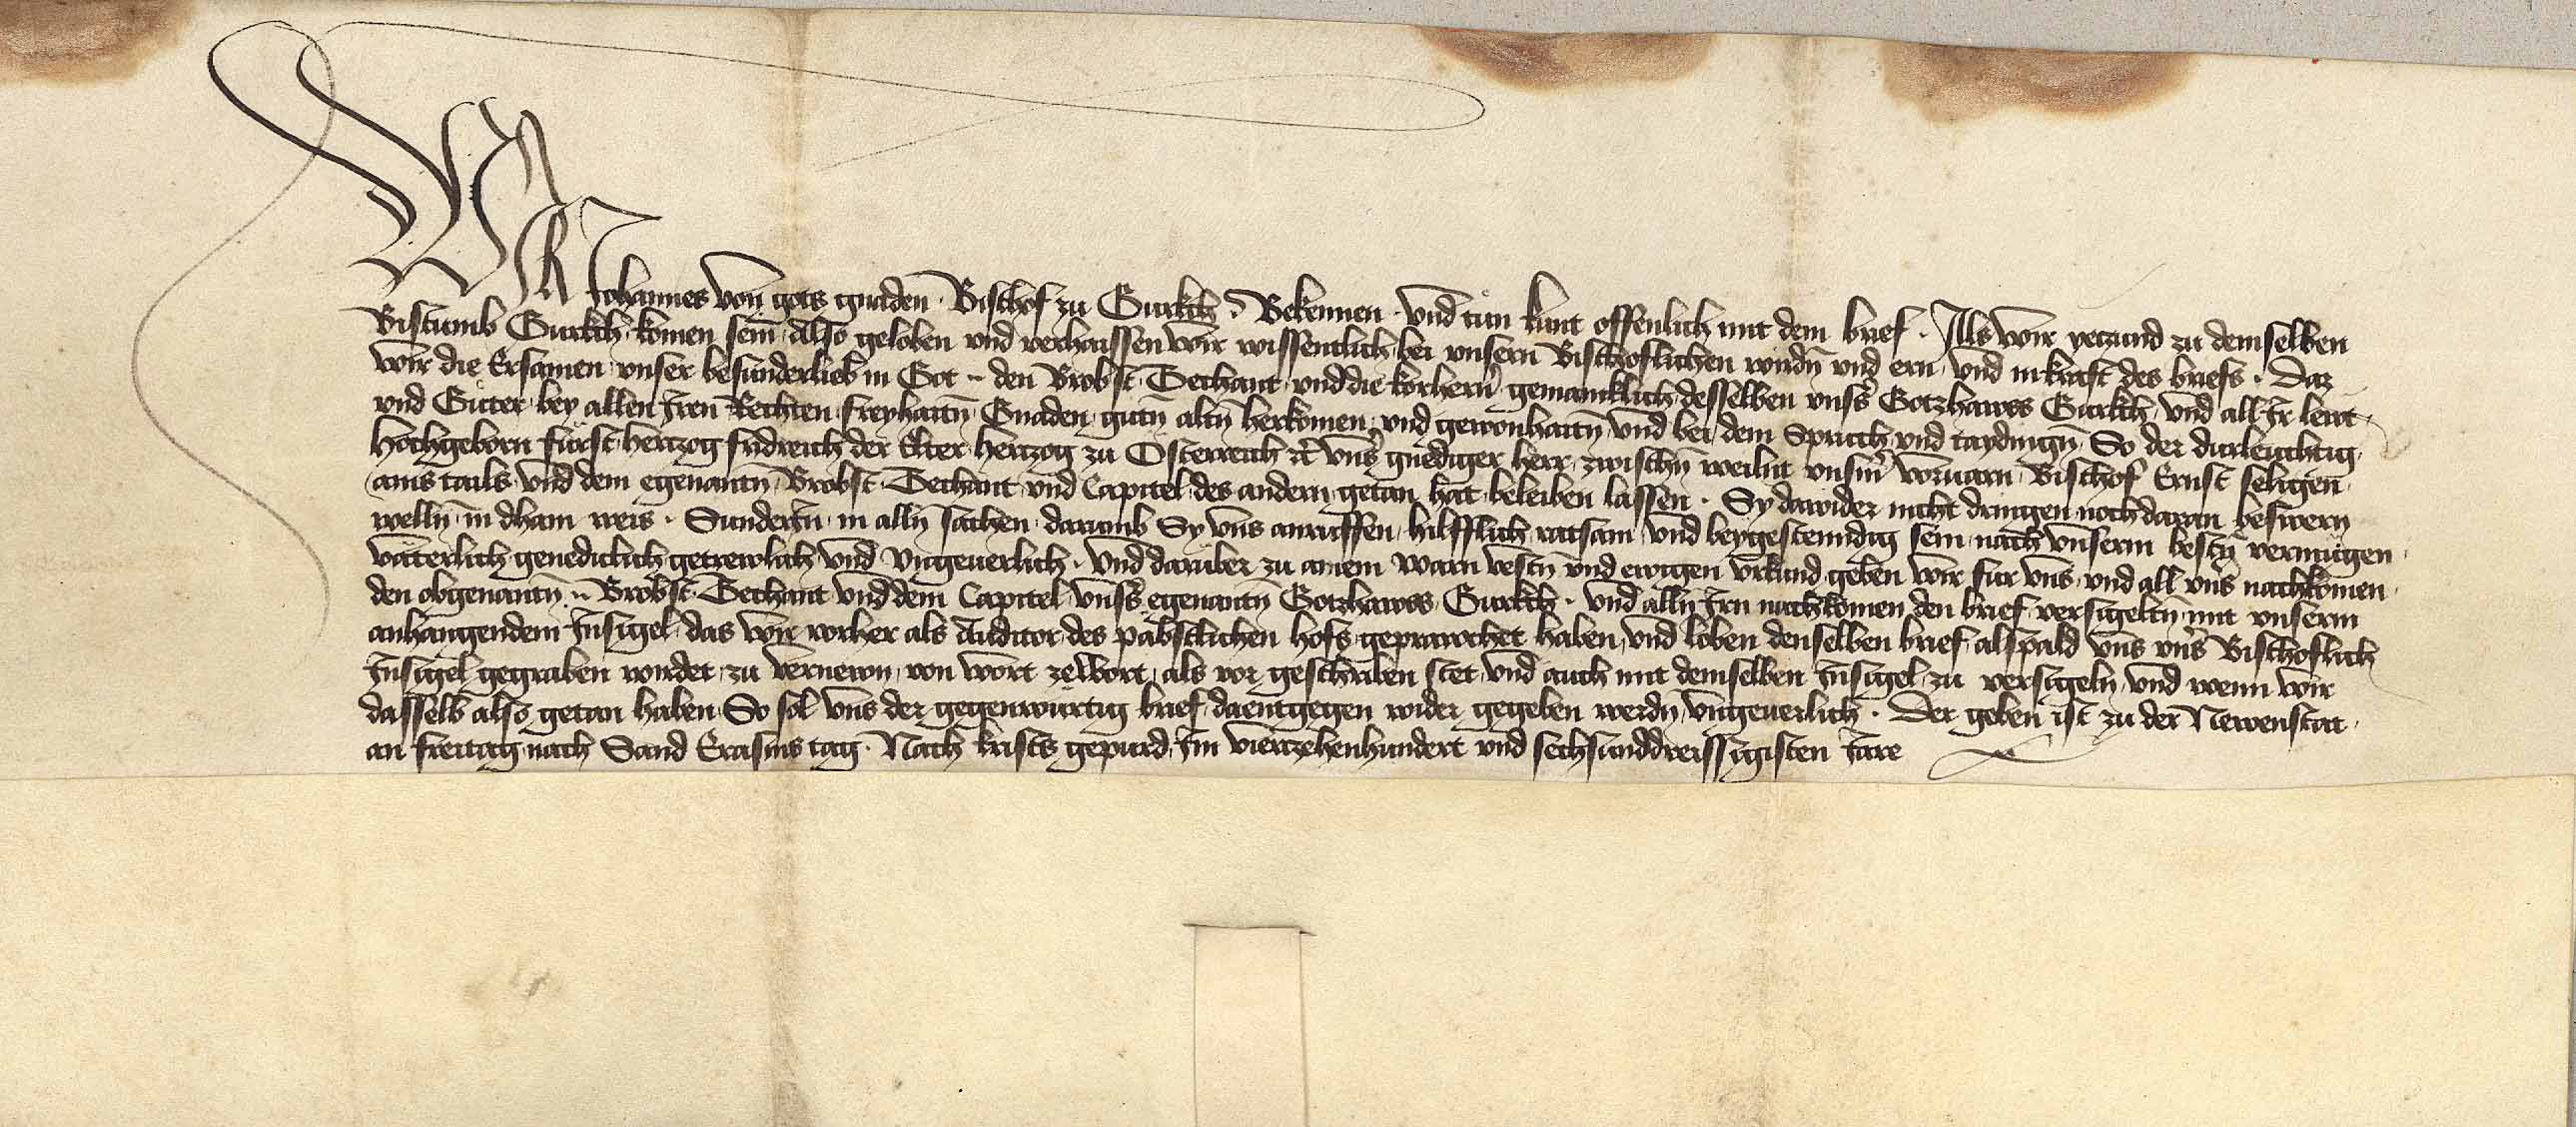 Wir Johannes von gots gnaden · Bischof zu Gurkch · Bekennen · vnd tun kunt offenlich mit dem brief · Als wir yeczund zu demselben
Bistumb Gurkch komen sein · Also geloben vnd verhaissen wir wissentlich bei vnsern Bischoflichen wirdn̄ vnd ern · vnd in kraft des briefs · Daz
wir die Ersamen vnser besunderlieb in Got ·· den Brobst Techant vnd die korhern̄ gemainklich desselben vnsˢ Gotzhawss Gurkch · vnd all Jr lewt
vnd Gůter bey allen Jren Rechten freyhaitn̄ Gnaden gutn̄ altn̄ herkomen · vnd gewonhaitn̄ vnd bei dem Spruch vnd taydingn̄ So der durleuchtig
hochgeborn fürst herczog fridreich der Elter herczog zu Österreich ꝛc̄ vnsˢ gnediger herr · zwischn̄ weilnt vnsm̄ voruarn Bischof Ernst seligen
ains tails vnd dem egenantn̄ Brobst Techant vnd Capitel des andern getan hat beleiben lassen · Sy dawider nicht dringen noch daran beswern
welln̄ in dhain weis · Sundern̄ in alln̄ sachen darumb Sy vns anruffen hilfflich ratsam vnd beygestenndig sein nach vnserm bestn̄ vermügen
våtterlich genediclich getrewlich vnd vngeuerlich · vnd darüber zu ainem warn vestn̄ vnd ewigen vrkund geben wir für vns · vnd all vnsˢ nachkomen
den obgenantn̄ ·· Brobst Techant vnd dem Capitel vnsˢ egenantn̄ Gotzhawss Gurkch · vnd alln̄ Jrn nachkomen den brief versigeltn̄ mit vnserm
anhangendem Jnsigel das wir vorher als Auditor des pabstlichen hofs geprawchet haben vnd loben denselben brief alspald vns vnsˢ Bischoflich
Jnsigel gegraben wirdet zu vernewn von wort ze wort als vor geschriben stet vnd auch mit demselben Jnsigel zu versigeln̄ vnd wenn wir
dasselb also getan haben So sol vns der gegenwürtig brief daentgegen wider gegeben werdn̄ vngeuerlich · Der geben ist zu der Newenstat
an freitag nach Sand Erasms tag · Nach krists gepurd Jm vierczehenhundert vnd sechsunddreissigisten Jare